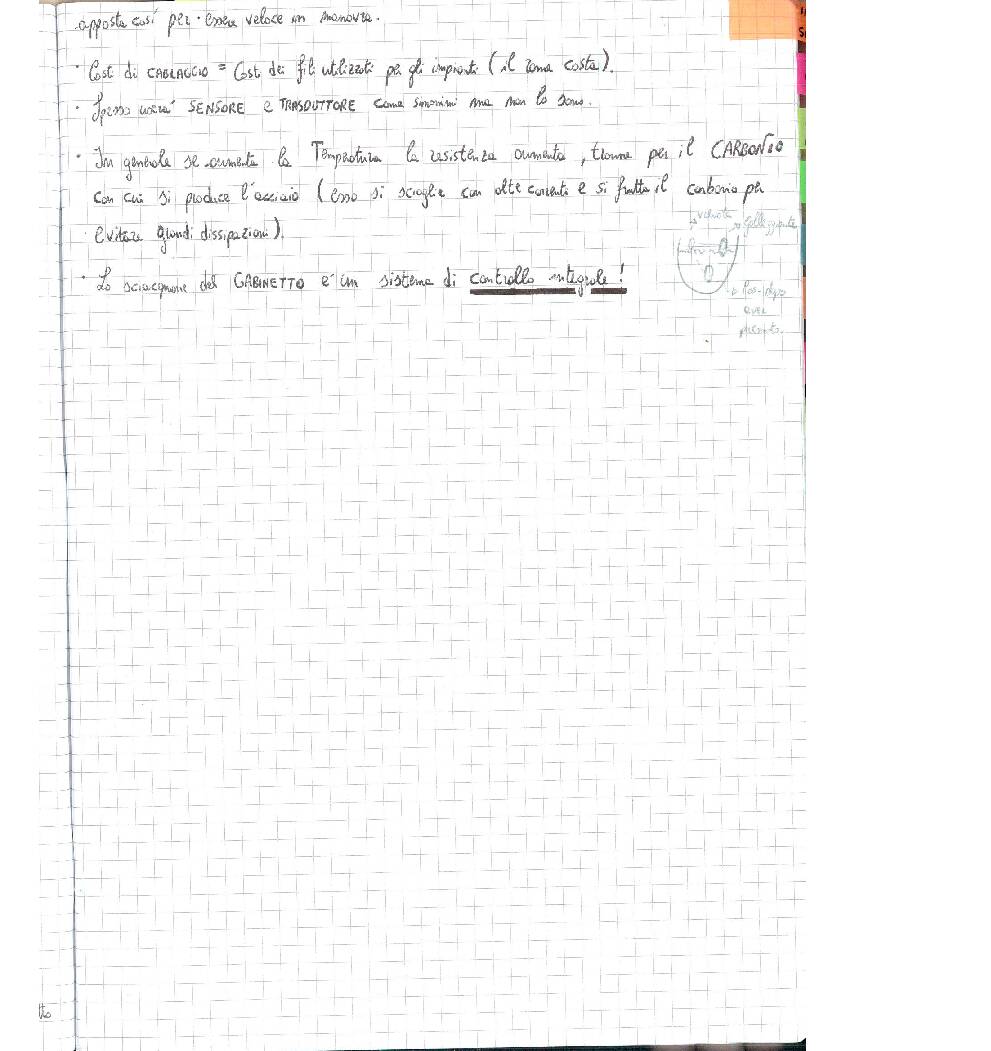 apposta così per essere veloce in manovra.
· Costi di CABLAGGIO = Costi dei fili utilizzati per gli impianti (il rame costa).
· Spesso userà SENSORE e TRASDUTTORE come sinonimi ma non lo sono.
· In generale se aumenta la Temperatura la resistenza aumenta, tranne per il CARBONIO
con cui si produce l'acciaio (esso si scioglie con alte correnti e si frutta il carbonio per
evitare grandi dissipazioni).
· Lo sciacquone del GABINETTO è un sistema di controllo integrale!
galleggiante